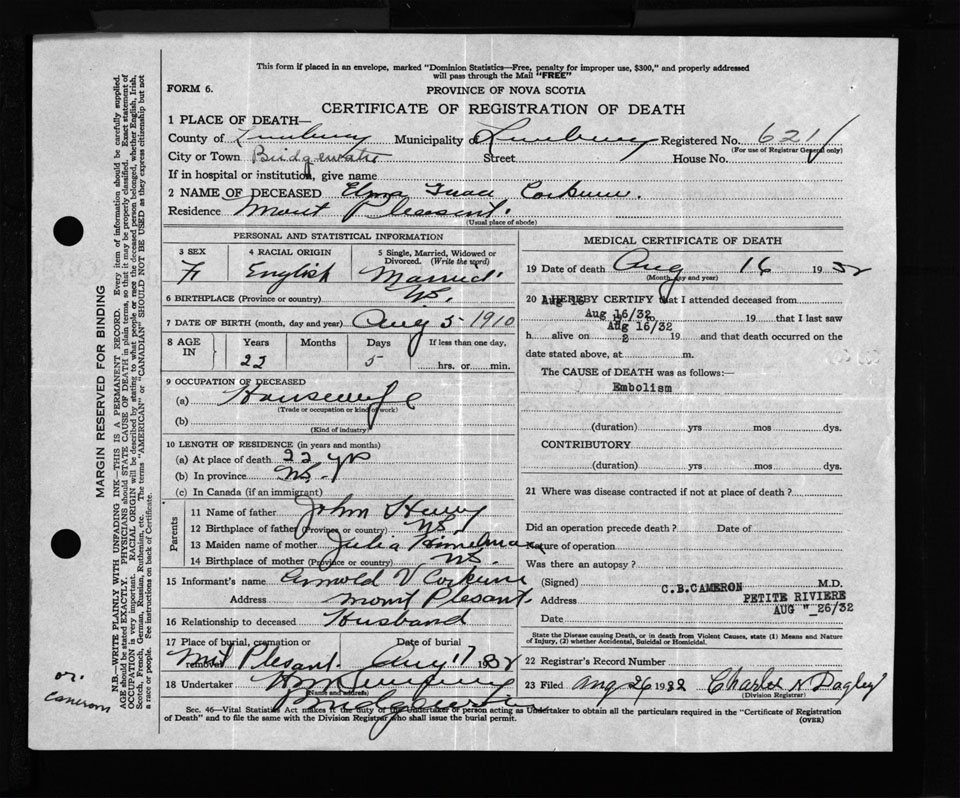 This form if placed in an envelope, marked "Dominion Statistics—Free, penalty for improper use, $300," and properly addressed
will pass through the Mail "FREE"
FORM 6.
PROVINCE OF NOVA SCOTIA
CERTIFICATE OF REGISTRATION OF DEATH
1 PLACE OF DEATH—
County of Lunenburg Municipality Lunenburg Registered No. 621
(For use of Registrar General only)
City or Town Bridgewater Street House No.
If in hospital or institution, give name
2 NAME OF DECEASED Elma Corkum.
Residence Mount Pleasant.
(Usual place of abode)
PERSONAL AND STATISTICAL INFORMATION
3 SEX 4 RACIAL ORIGIN 5 Single, Married, Widowed or Divorced. (Write the word)
F English Married
6 BIRTHPLACE (Province or country) NS.
7 DATE OF BIRTH (month, day and year) Aug 5-1910
8 AGE IN Years Months Days If less than one day,
22 5 hrs. or min.
9 OCCUPATION OF DECEASED
(a) Housewife
(Trade or occupation or kind of work)
(b)
(Kind of industry)
10 LENGTH OF RESIDENCE (in years and months)
(a) At place of death 22 yrs
(b) In province NS.
(c) In Canada (if an immigrant)
Parents
11 Name of father John
12 Birthplace of father (Province or country) NS.
13 Maiden name of mother Julia Himelman
14 Birthplace of mother (Province or country) NS.
15 Informant's name Arnold V Corkum
Address Mount Plesant.
16 Relationship to deceased Husband
17 Place of burial, cremation or removal Date of burial
Mnt Plesant. Aug 17 1932
18 Undertaker
(Name and address)
Bridgewater
MEDICAL CERTIFICATE OF DEATH
19 Date of death Aug 16 1932
(Month, day and year)
20 I HEREBY CERTIFY that I attended deceased from
Aug 16
Aug 16/32 19 that I last saw
Aug 16/32
h alive on 2 19 and that death occurred on the
date stated above, at m.
The CAUSE of DEATH was as follows:—
Embolism
(duration) yrs mos dys.
CONTRIBUTORY
(duration) yrs mos dys.
21 Where was disease contracted if not at place of death?
Did an operation precede death? Date of
Nature of operation
Was there an autopsy?
(Signed) C.B.CAMERON M.D.
Address PETITE RIVIERE
Date AUG " 26/32
State the Disease causing Death, or in death from Violent Causes, state (1) Means and Nature
of Injury, (2) whether Accidental, Suicidal or Homicidal.
22 Registrar's Record Number
23 Filed Aug 26 1932 Charles N Dagley
(Division Registrar)
Sec. 46—Vital Statistics Act makes it the duty of the Undertaker or person acting as Undertaker to obtain all the particulars required in the "Certificate of Registration
of Death" and to file the same with the Division Registrar who shall issue the burial permit.
(OVER)
MARGIN RESERVED FOR BINDING
N.B.—WRITE PLAINLY WITH UNFADING INK—THIS IS A PERMANENT RECORD. Every item of information should be carefully supplied.
AGE should be stated EXACTLY. PHYSICIANS should STATE CAUSE OF DEATH in plain terms, so that it may be properly classified. Exact statement of
OCCUPATION is very important. RACIAL ORIGIN will be described by stating to what people or race the deceased person belonged, whether English, Irish,
Scotch, French, German, Russian, Ruthenian, etc. The terms "AMERICAN" or "CANADIAN" SHOULD NOT BE USED as they express citizenship but not
a race or people. See instructions on back of Certificate.
Dr.
Cameron